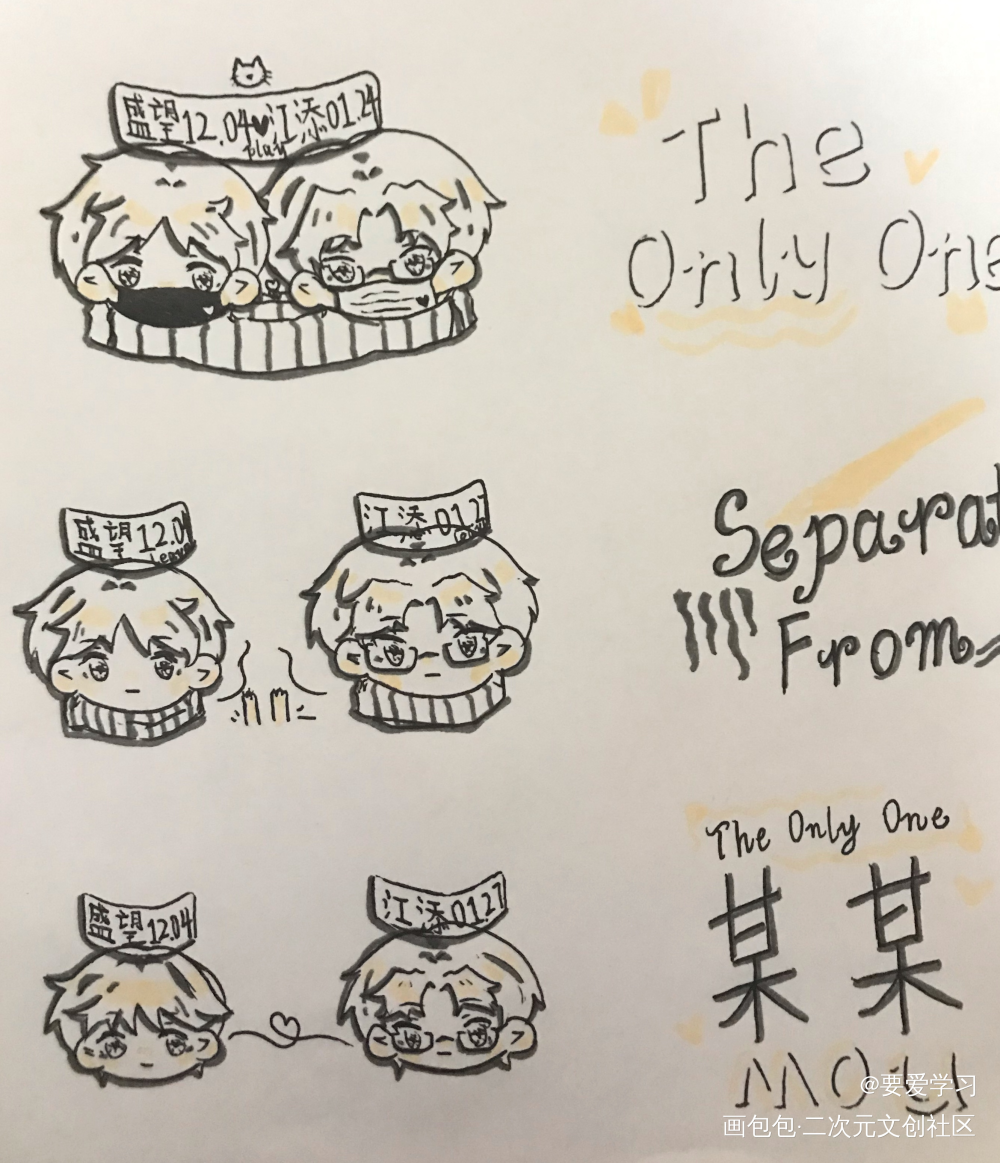 盛望12.04♥江添01.24
play
The
Only One
盛望12.04
江添 0127
Separat
From
The Only One
盛望12.04
江添0127
某某
MOU
@要爱学习
画包包·二次元文创社区